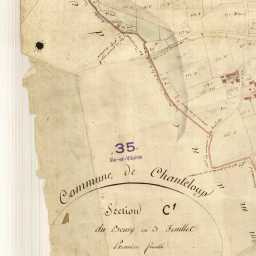 35
Ille-et-Vilaine
Commune de Chanteloup
Section C¹
du Bourg en 3 Feuilles
Première feuille